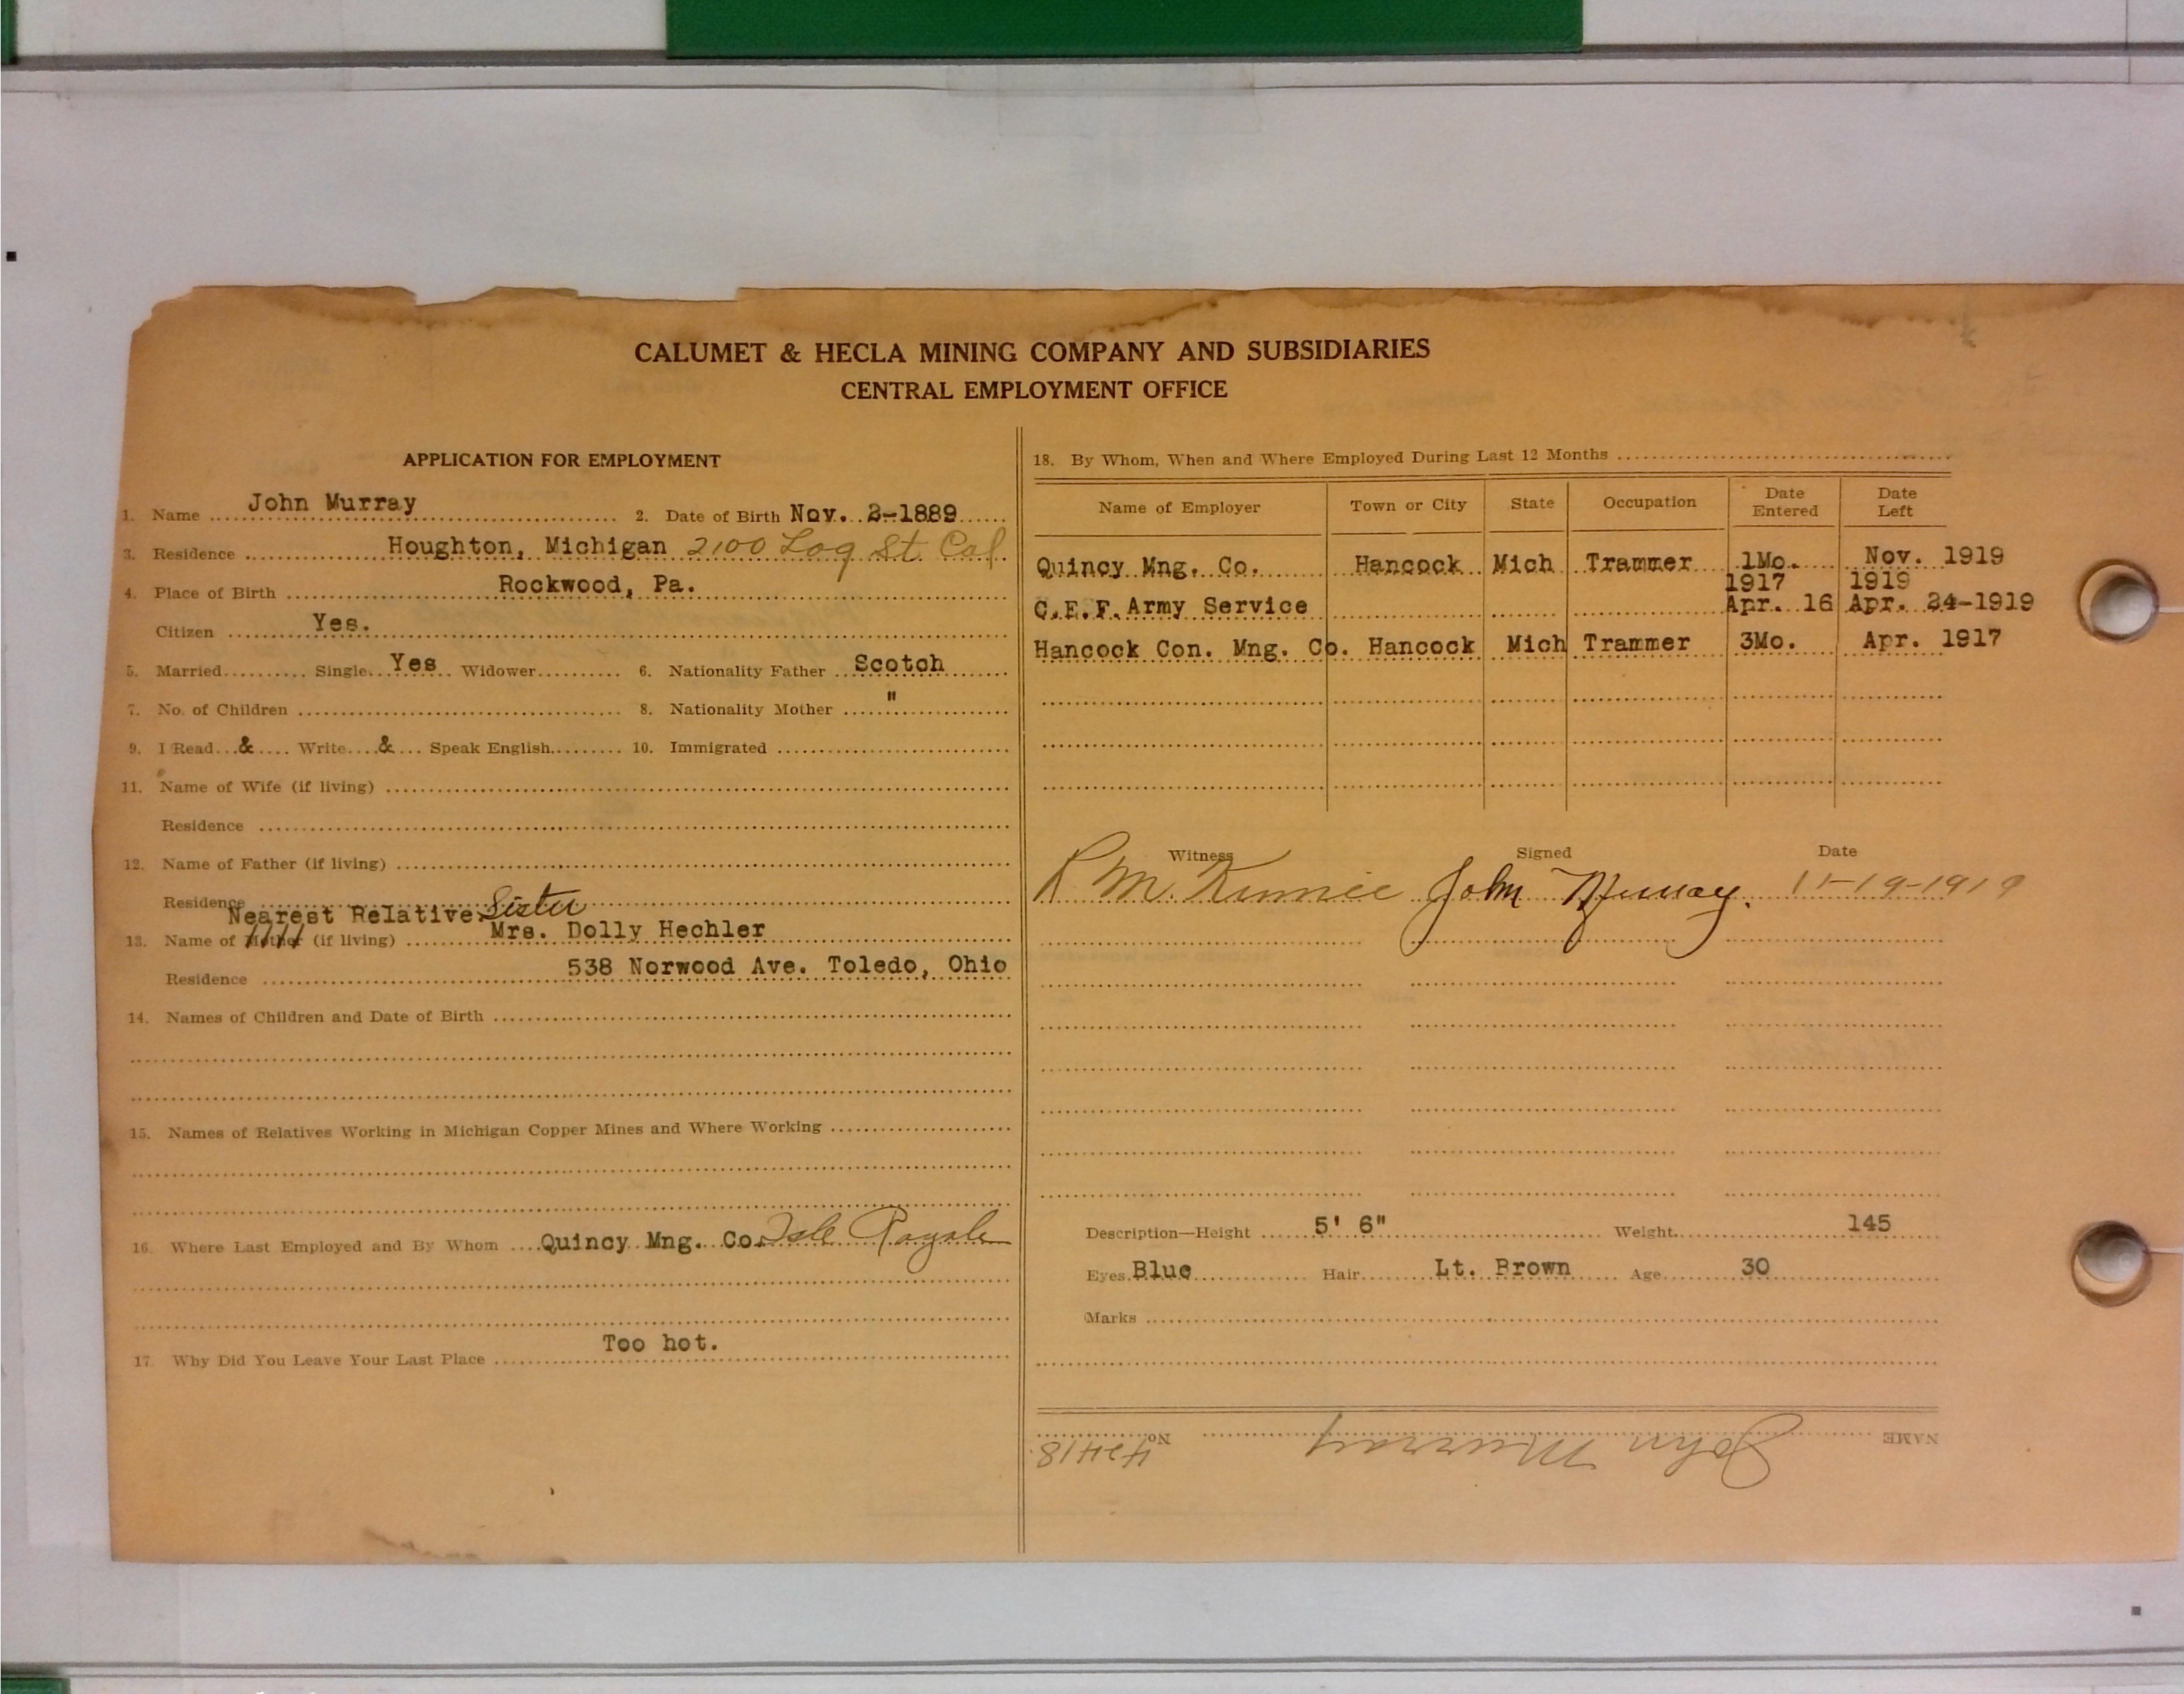 CALUMET & HECLA MINING COMPANY AND SUBSIDIARIES
CENTRAL EMPLOYMENT OFFICE
APPLICATION FOR EMPLOYMENT
1. Name John Murray 2. Date of Birth Nov. 2-1889
3. Residence Houghton, Michigan 2100 Log St. Cal
4. Place of Birth Rockwood, Pa.
Citizen Yes.
5. Married Single Yes Widower 6. Nationality Father Scotch
7. No. of Children 8. Nationality Mother "
9. I Read & Write & Speak English 10. Immigrated
11. Name of Wife (if living)
Residence
12. Name of Father (if living)
Residence
Nearest Relative Sister
13. Name of Mother (if living) Mrs. Dolly Hechler
Residence 538 Norwood Ave. Toledo, Ohio
14. Names of Children and Date of Birth
15. Names of Relatives Working in Michigan Copper Mines and Where Working
16. Where Last Employed and By Whom Quincy Mng. Co. Isle Royale
17. Why Did You Leave Your Last Place Too hot.
18. By Whom, When and Where Employed During Last 12 Months
Name of Employer Town or City State Occupation Date Entered Date Left
Quincy Mng. Co. Hancock Mich Trammer 1Mo. Nov. 1919
1917 1919
C.E.F. Army Service Apr. 16 Apr. 24-1919
Hancock Con. Mng. Co. Hancock Mich Trammer 3Mo. Apr. 1917
Witness Signed Date
R M. John Murray. 11-19-1919
Description—Height 5' 6" Weight 145
Eyes Blue Hair Lt. Brown Age 30
Marks
NAME John Murray No. 42418